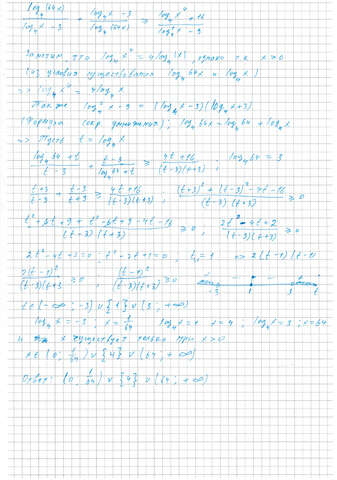 log₄(64x) / (log₄x - 3) + (log₄x - 3) / log₄(64x) ≥ (log₄x⁴ + 16) / (log₄²x - 9)
Заметим, что log₄x⁴ = 4log₄|x|, однако т.к. x>0
(из условия существования log₄64x и log₄x)
=> log₄x⁴ = 4log₄x
Также log₄²x - 9 = (log₄x-3)(log₄x+3)
(Формула сокр. умножения); log₄64x = log₄64 + log₄x
=> Пусть t = log₄x
(log₄64 + t) / (t-3) + (t-3) / (log₄64 + t) ≥ (4t+16) / ((t-3)(t+3)) ; log₄64 = 3
(t+3)/(t-3) + (t-3)/(t+3) ≥ (4t+16)/((t-3)(t+3)) ; ((t+3)²+(t-3)²-4t-16)/((t-3)(t+3)) ≥ 0
(t²+6t+9+t²-6t+9-4t-16)/((t-3)(t+3)) ≥ 0 ; (2t²-4t+2)/((t-3)(t+3)) ≥ 0
2t²-4t+2=0 ; t²-2t+1=0 ; t₁,₂=1 => 2(t-1)(t-1)
2(t-1)²/((t-3)(t+3)) ≥ 0 ; (t-1)²/((t-3)(t+3)) ≥ 0 -3 1 3 t
t∈(-∞; -3) ∪ {1} ∪ (3; +∞)
log₄x = -3 ; x = 1/64 log₄x = 1 x = 4 ; log₄x = 3 ; x = 64
x существует только при x>0
x∈(0; 1/64) ∪ {4} ∪ (64; +∞)
Ответ: (0; 1/64) ∪ {4} ∪ (64; +∞)